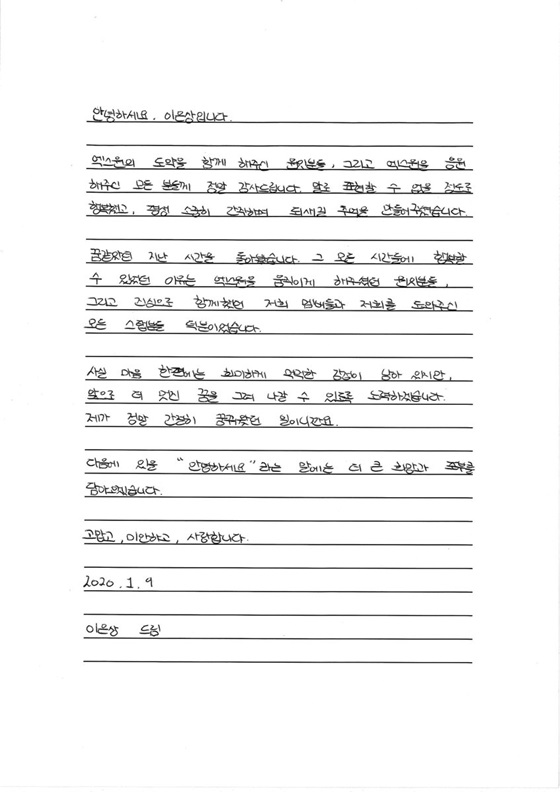 안녕하세요. 이은상입니다.
엑스원의 도약을 함께 해주신 원잇분들, 그리고 엑스원을 응원
해주신 모든 분들께 정말 감사드립니다. 말로 표현할 수 없을 정도로
행복했고, 평생 소중히 간직하며 되새길 추억을 만들어주셨습니다.
꿈같았던 지난 시간을 돌아봤습니다. 그 모든 시간들에 행복할
수 있었던 이유는 엑스원을 움직이게 해주셨던 원잇분들,
그리고 진심으로 함께했던 저희 멤버들과 저희를 도와주신
모든 스탭분들 덕분이었습니다.
사실 마음 한편에는 희미하게 먹먹한 감정이 남아 있지만,
앞으로 더 멋진 꿈을 그려 나갈 수 있도록 노력하겠습니다.
제가 정말 간절히 꿈꿔왔던 일이니깐요.
다음에 있을 "안녕하세요"라는 말에는 더 큰 희망과 포부를
담아오겠습니다.
고맙고, 미안하고, 사랑합니다.
2020. 1. 9
이은상 드림